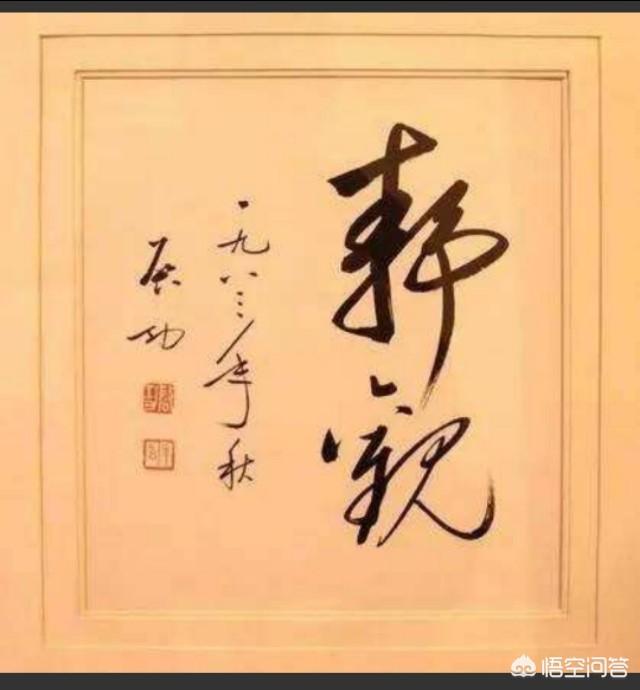 靜觀
一九八三年秋
启功
悟空问答